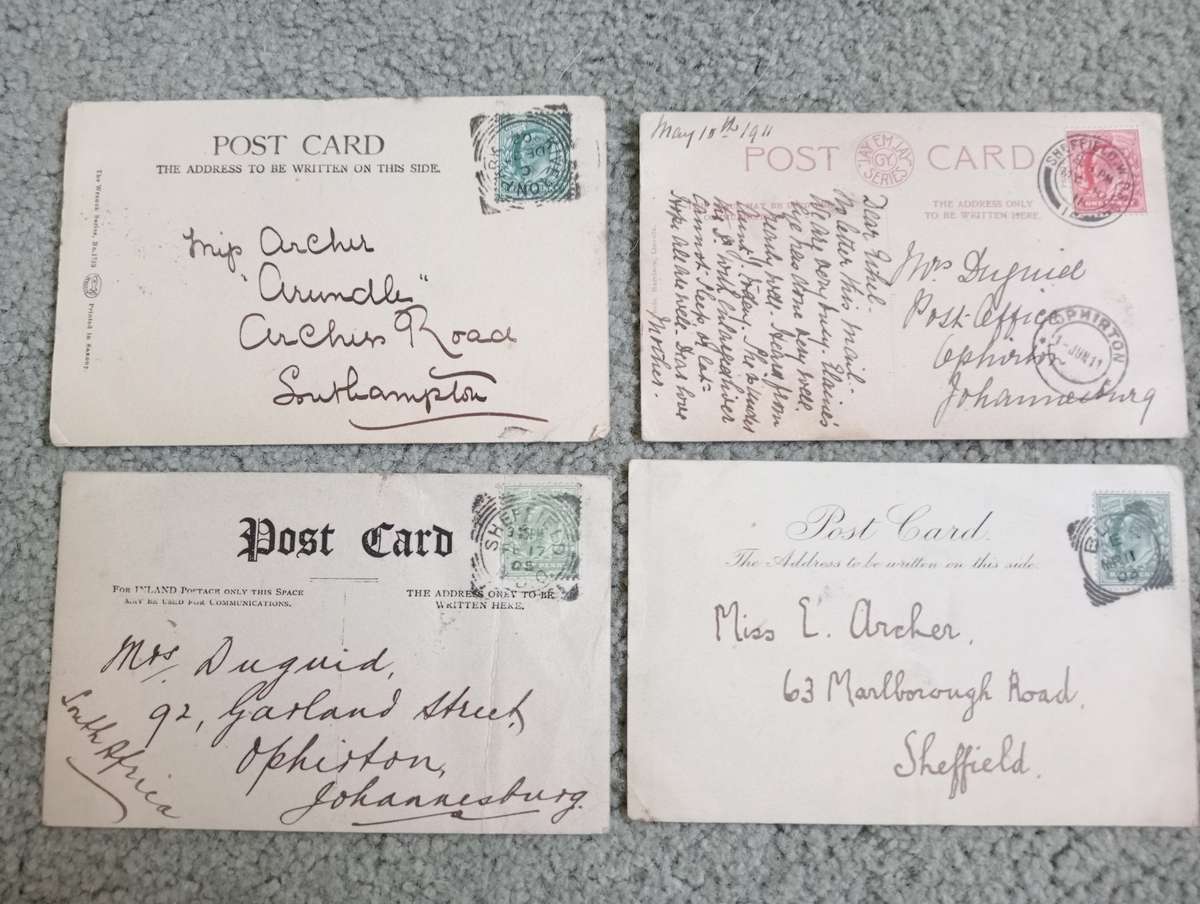 POST CARD
THE ADDRESS TO BE WRITTEN ON THIS SIDE.
The Wrench Series, No.
Printed in Saxony
Miss Archer
"Arundle"
Archers Road
Southampton
May 10th 1911
POST CARD
JAY EM JAY
SERIES
THE ADDRESS ONLY
TO BE WRITTEN HERE.
SHEFFIELD
ONE PENNY
Dear Ethel-
No letter this mail-
We are very busy. Elaine's
eye has done very well.
Hope all are well. Dear love
Mother.
Mrs Duguid
Post-Office
Ophirton
Johannesburg
OPHIRTON
1-JUN 11
Post Card
FOR INLAND POSTAGE ONLY THIS SPACE
MAY BE USED FOR COMMUNICATIONS.
THE ADDRESS ONLY TO BE
WRITTEN HERE.
SHEFFIELD
17
09
Mrs, Duguid,
92, Garland Street,
Ophirton,
Johannesburg.
South Africa
Post Card.
The Address to be written on this side.
11
Miss E. Archer,
63 Marlborough Road,
Sheffield.